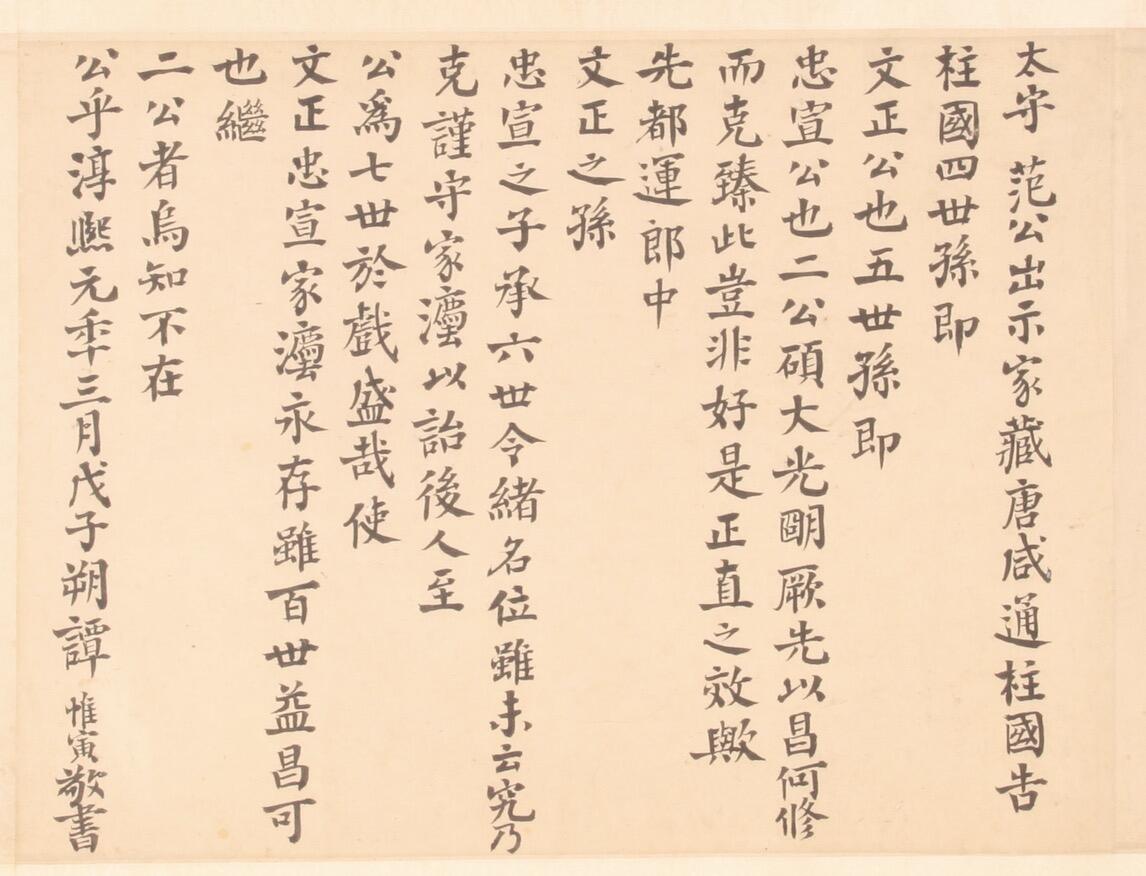 太守 范公出示家藏唐咸通柱國告
柱國四世孫即
文正公也五世孫即
忠宣公也二公碩大光明厥先以昌何修
而克臻此豈非好是正直之效歟
先都運郎中
文正之孫
忠宣之子承六世令緒名位雖未云究乃
克謹守家灋以詒後人至
公爲七世於戲盛哉使
文正忠宣家灋永存雖百世益昌可
也繼
二公者烏知不在
公乎淳熙元秊三月戊子朔譚惟寅敬書